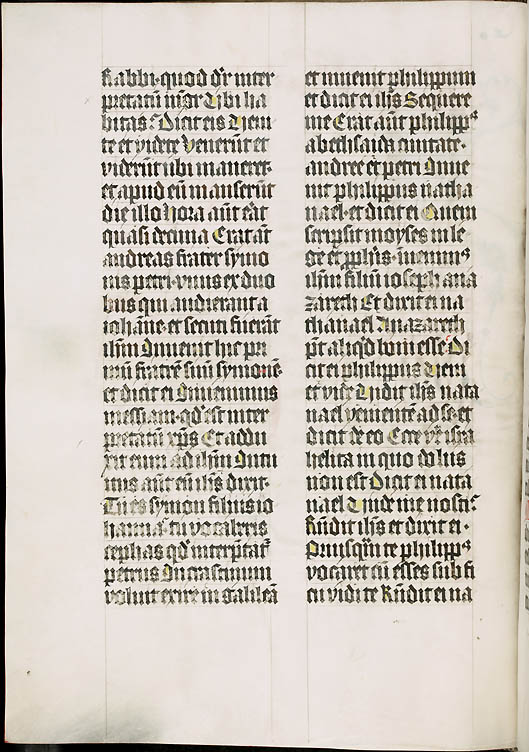 Rabbi· quod dr̄ inter
pretatū mgr̄ Ubi ha
bitas? Dicit eis Veni
te et videte Venerūt et
viderūt ubi maneret·
et apud eū manserūt
die illo Hora aūt erat
quasi decima Erat aūt
andreas frater symo
nis petri· vnus ex duo
bus qui audierant a
iohāne· et secuti fuerāt
ihm̄ Inuenit hic pri
mū fratrē suū symonē·
et dicit ei Inuenimus
messiam· qd̄ est inter
pretatū xp̄s Et addu
xit eum ad ihm̄ Intu
itus aūt eū ihs̄ dixit·
Tu es symon filius io
hanna· tu vocaberis
cephas qd̄ interp̄tat᷑
petrus In crastinum
voluit exire in galileā
et inuenit philippum
et dicit ei ihs̄ Sequere
me Erat aūt philippꝰ
a bethsaida ciuitate·
andree et petri Inue
nit philippus natha
nael· et dicit ei Quem
scripsit moyses in le
ge et ꝓphīs· inuenimꝰ
ihm̄ filiū ioseph a na
zareth Et dixit ei na
thanael A nazareth
pt̄ aliqd̄ boni esse· Di
cit ei philippus Veni
et vide Vidit ihs̄ nata
nael venientē ad se· et
dicit de eo Ecce vere isra
helita in quo dolus
non est Dicit ei nata
nael Unde me nosti?
Rn̄dit ihs̄ et dixit ei·
Priusqm̄ te philippꝰ
vocaret cū esses sub fi
cu vidi te Rn̄dit ei na